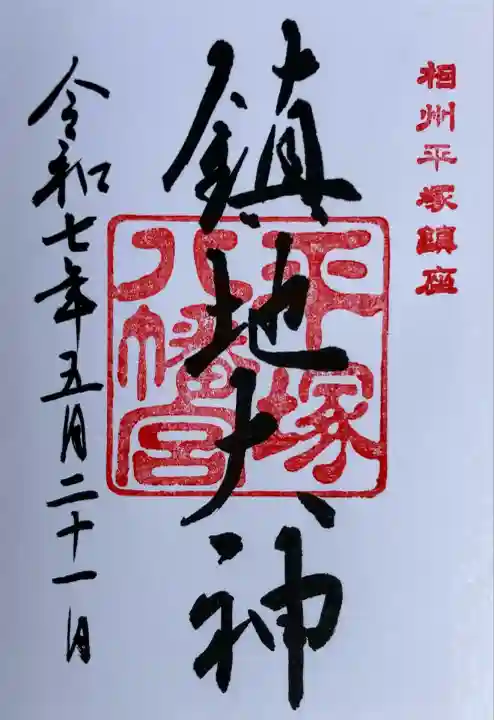 相州平塚鎮座
鎮地大神
平塚八幡宮
令和七年五月二十一日